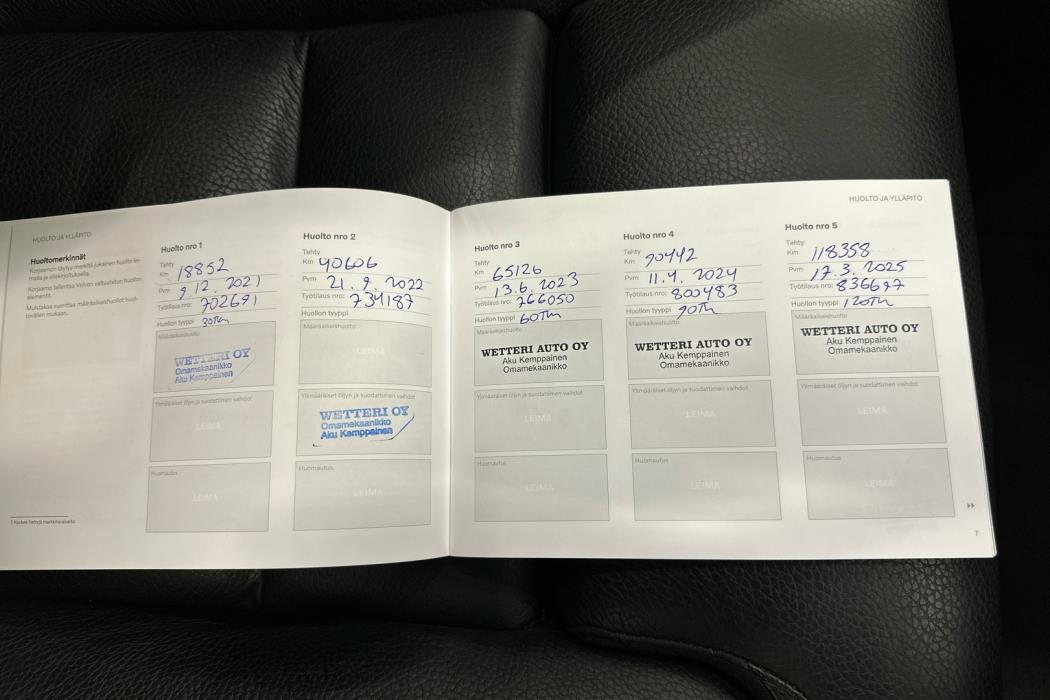 HUOLTO JA YLLÄPITO
Huoltomerkinnät
Korjaamon täytyy merkitä jokainen huolto lei-
malla ja allekirjoituksella.
elementit.
Huolto nro 1
Tehty
Km 18852
Pvm 9.12.2021
Työtilaus nro: 702691
Huollon tyyppi 30Tkm
Määräaikaishuolto
WETTERI OY
Omamekaanikko
Aku Kemppainen
Ylimääräiset öljyn ja suodattimen vaihdot
LEIMA
Huomautus
LEIMA
Huolto nro 2
Tehty
Km 40606
Pvm 21.9.2022
Työtilaus nro: 734187
Huollon tyyppi
Määräaikaishuolto
LEIMA
Ylimääräiset öljyn ja suodattimen vaihdot
WETTERI OY
Omamekaanikko
Aku Kemppainen
Huomautus
LEIMA
Huolto nro 3
Tehty
Km 65126
Pvm 13.6.2023
Työtilaus nro: 766050
Huollon tyyppi 60Tkm
Määräaikaishuolto
WETTERI AUTO OY
Aku Kemppainen
Omamekaanikko
Ylimääräiset öljyn ja suodattimen vaihdot
LEIMA
Huomautus
LEIMA
Huolto nro 4
Tehty
Km 90442
Pvm 11.4.2024
Työtilaus nro: 800483
Huollon tyyppi 90Tkm
Määräaikaishuolto
WETTERI AUTO OY
Aku Kemppainen
Omamekaanikko
Ylimääräiset öljyn ja suodattimen vaihdot
LEIMA
Huomautus
LEIMA
HUOLTO JA YLLÄPITO
Huolto nro 5
Tehty
Km 118358
Pvm 17.3.2025
Työtilaus nro: 836697
Huollon tyyppi 120Tkm
Määräaikaishuolto
WETTERI AUTO OY
Aku Kemppainen
Omamekaanikko
Ylimääräiset öljyn ja suodattimen vaihdot
LEIMA
Huomautus
LEIMA
7